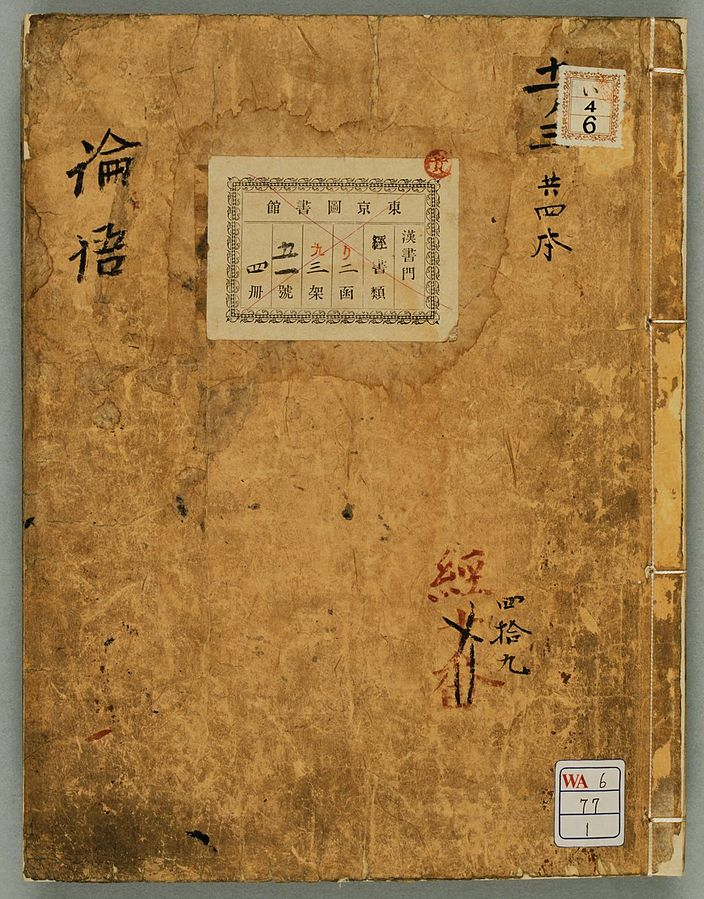 論語
東京圖書館
漢書門
經書類
り二函
九三架
五一號
四冊
共四本
4
6
經
四拾九
WA 6
77
1